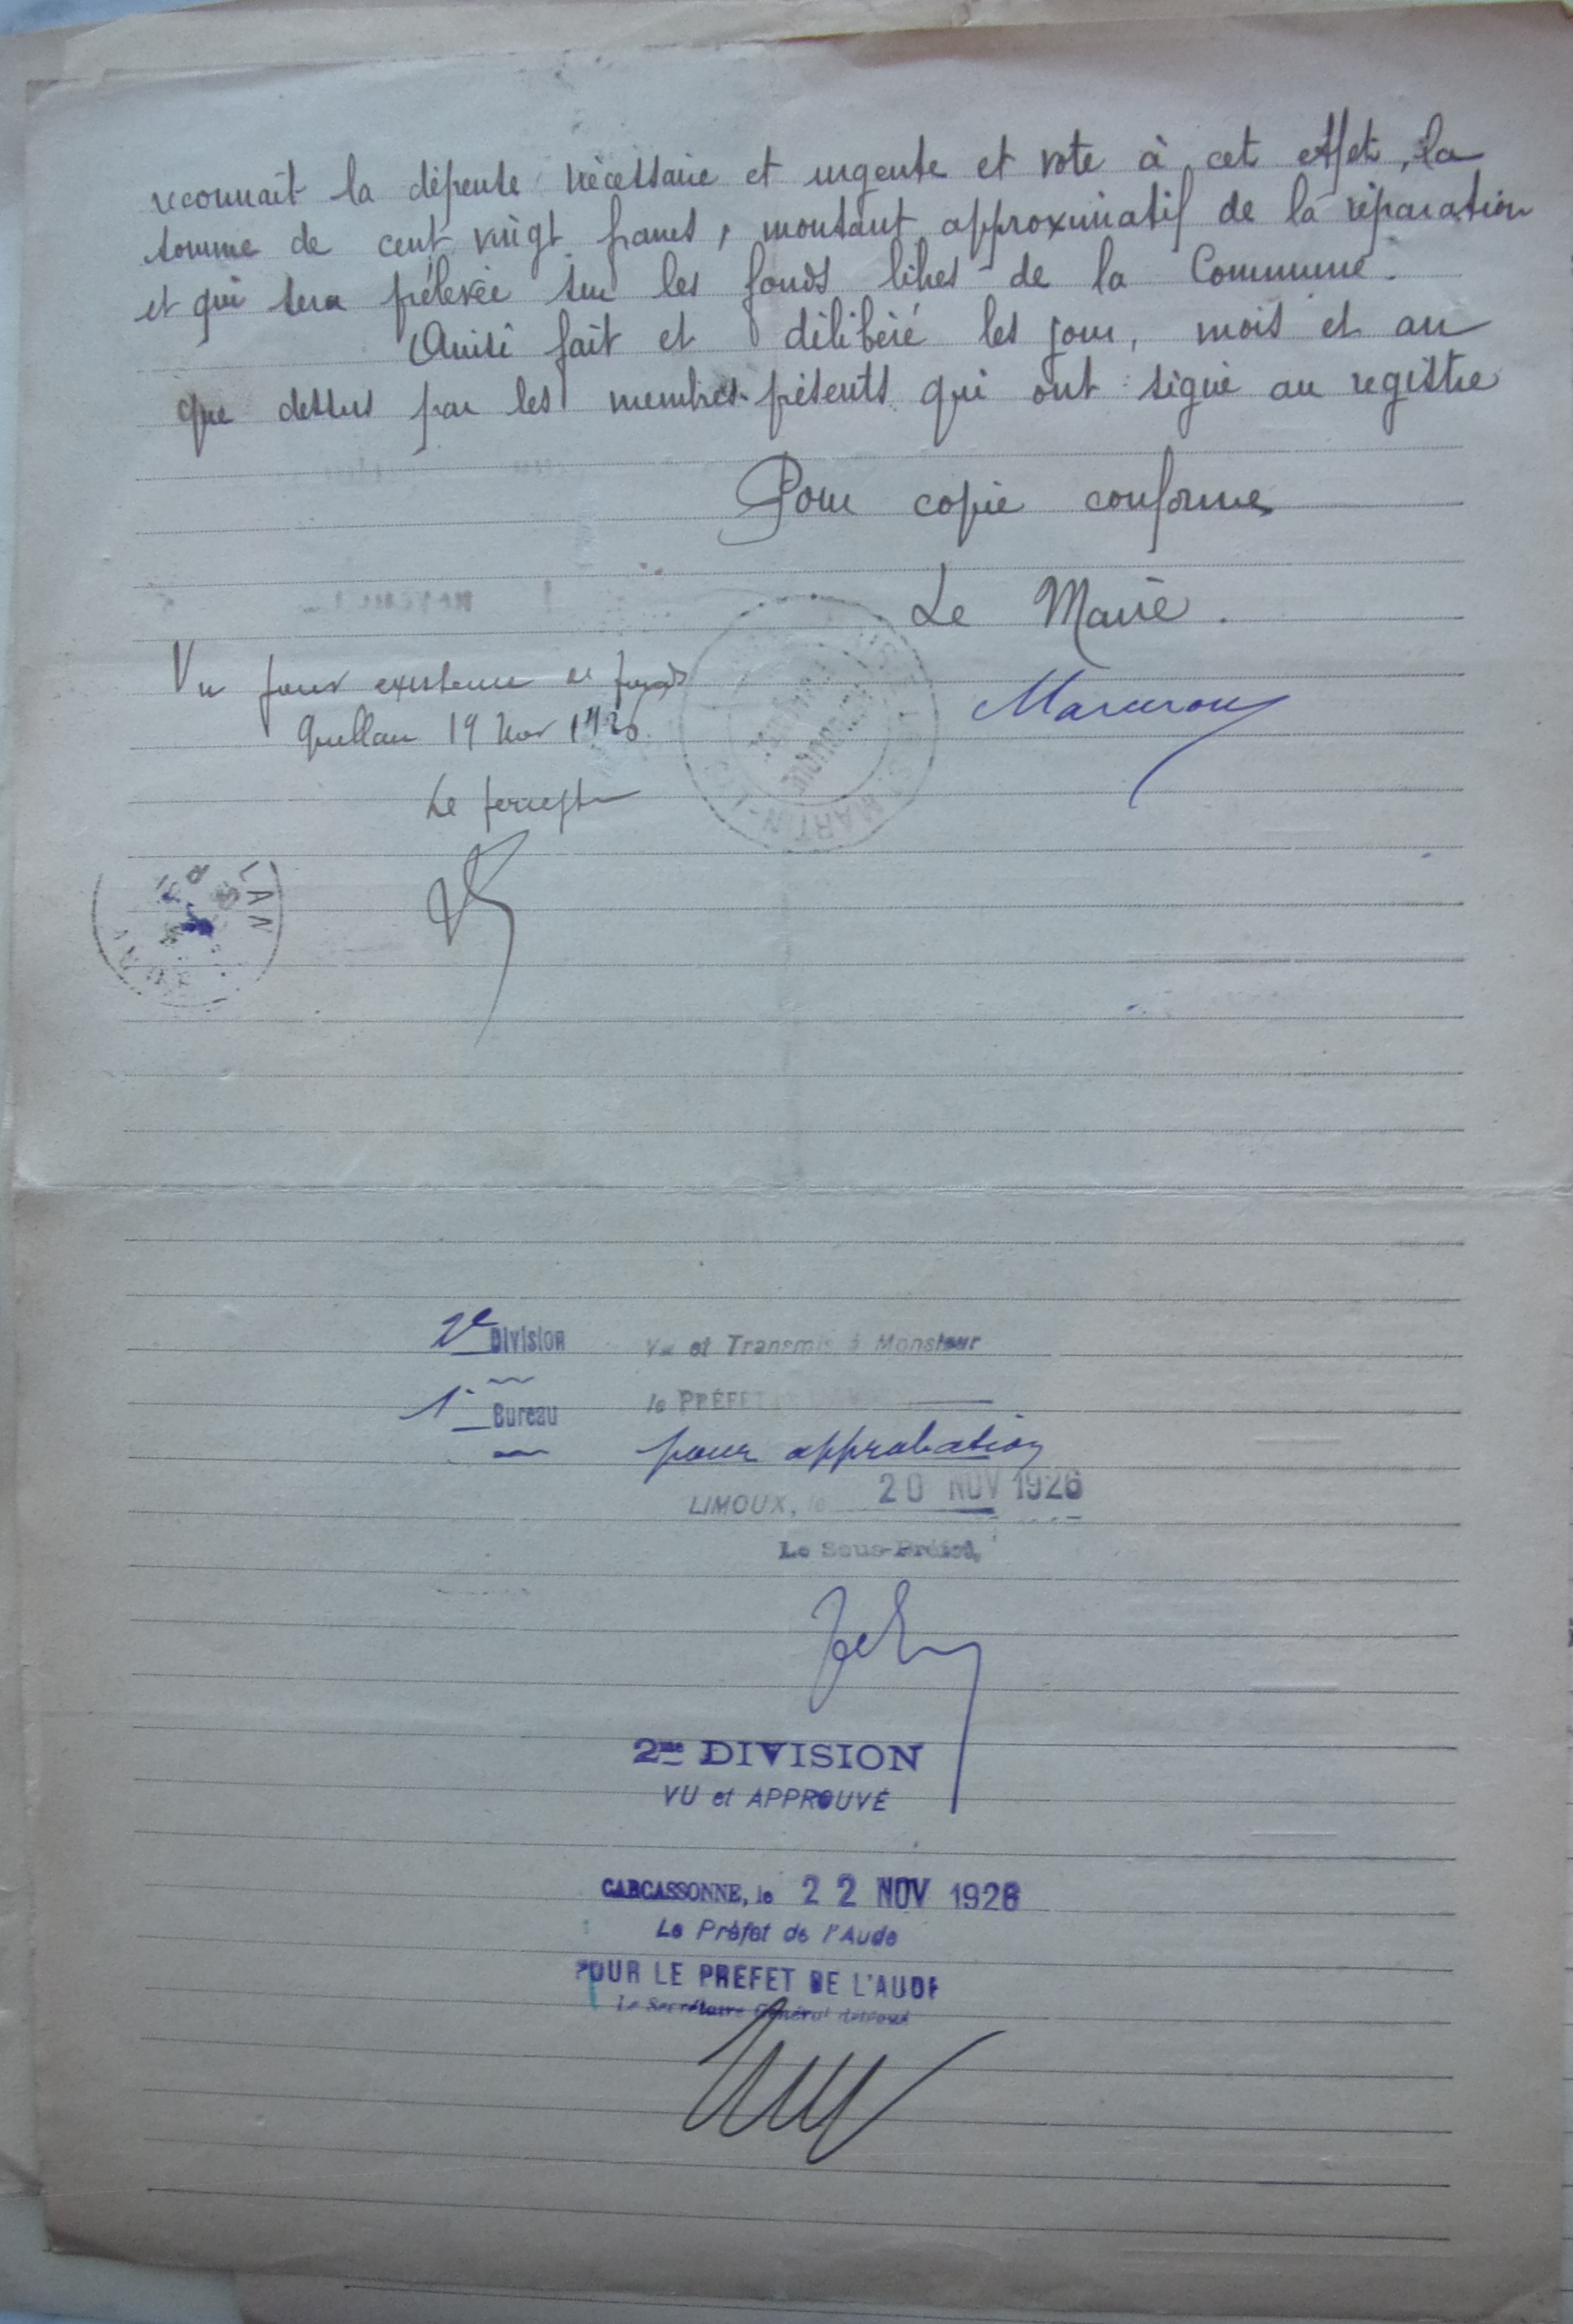 reconnaît la dépense nécessaire et urgente et vote à cet effet, la
somme de cent vingt francs, montant approximatif de la réparation
et qui sera prélevée sur les fonds libres de la Commune.
Ainsi fait et délibéré les jour, mois et an
que dessus par les membres présents qui ont signé au registre
Pour copie conforme
Le Maire.
Vu pour existence de fonds
Quillan 19 Nov 1926
Le percepteur
MARTIN-L
LAN
2e Division
Vu et Transmis à Monsieur
1r Bureau
le PRÉFET
pour approbation
LIMOUX, le 20 NOV 1926
Le Sous-Préfet,
2me DIVISION
VU et APPROUVÉ
CARCASSONNE, le 22 NOV 1926
Le Préfet de l'Aude
POUR LE PREFET DE L'AUDE
Le Secrétaire Général délégué